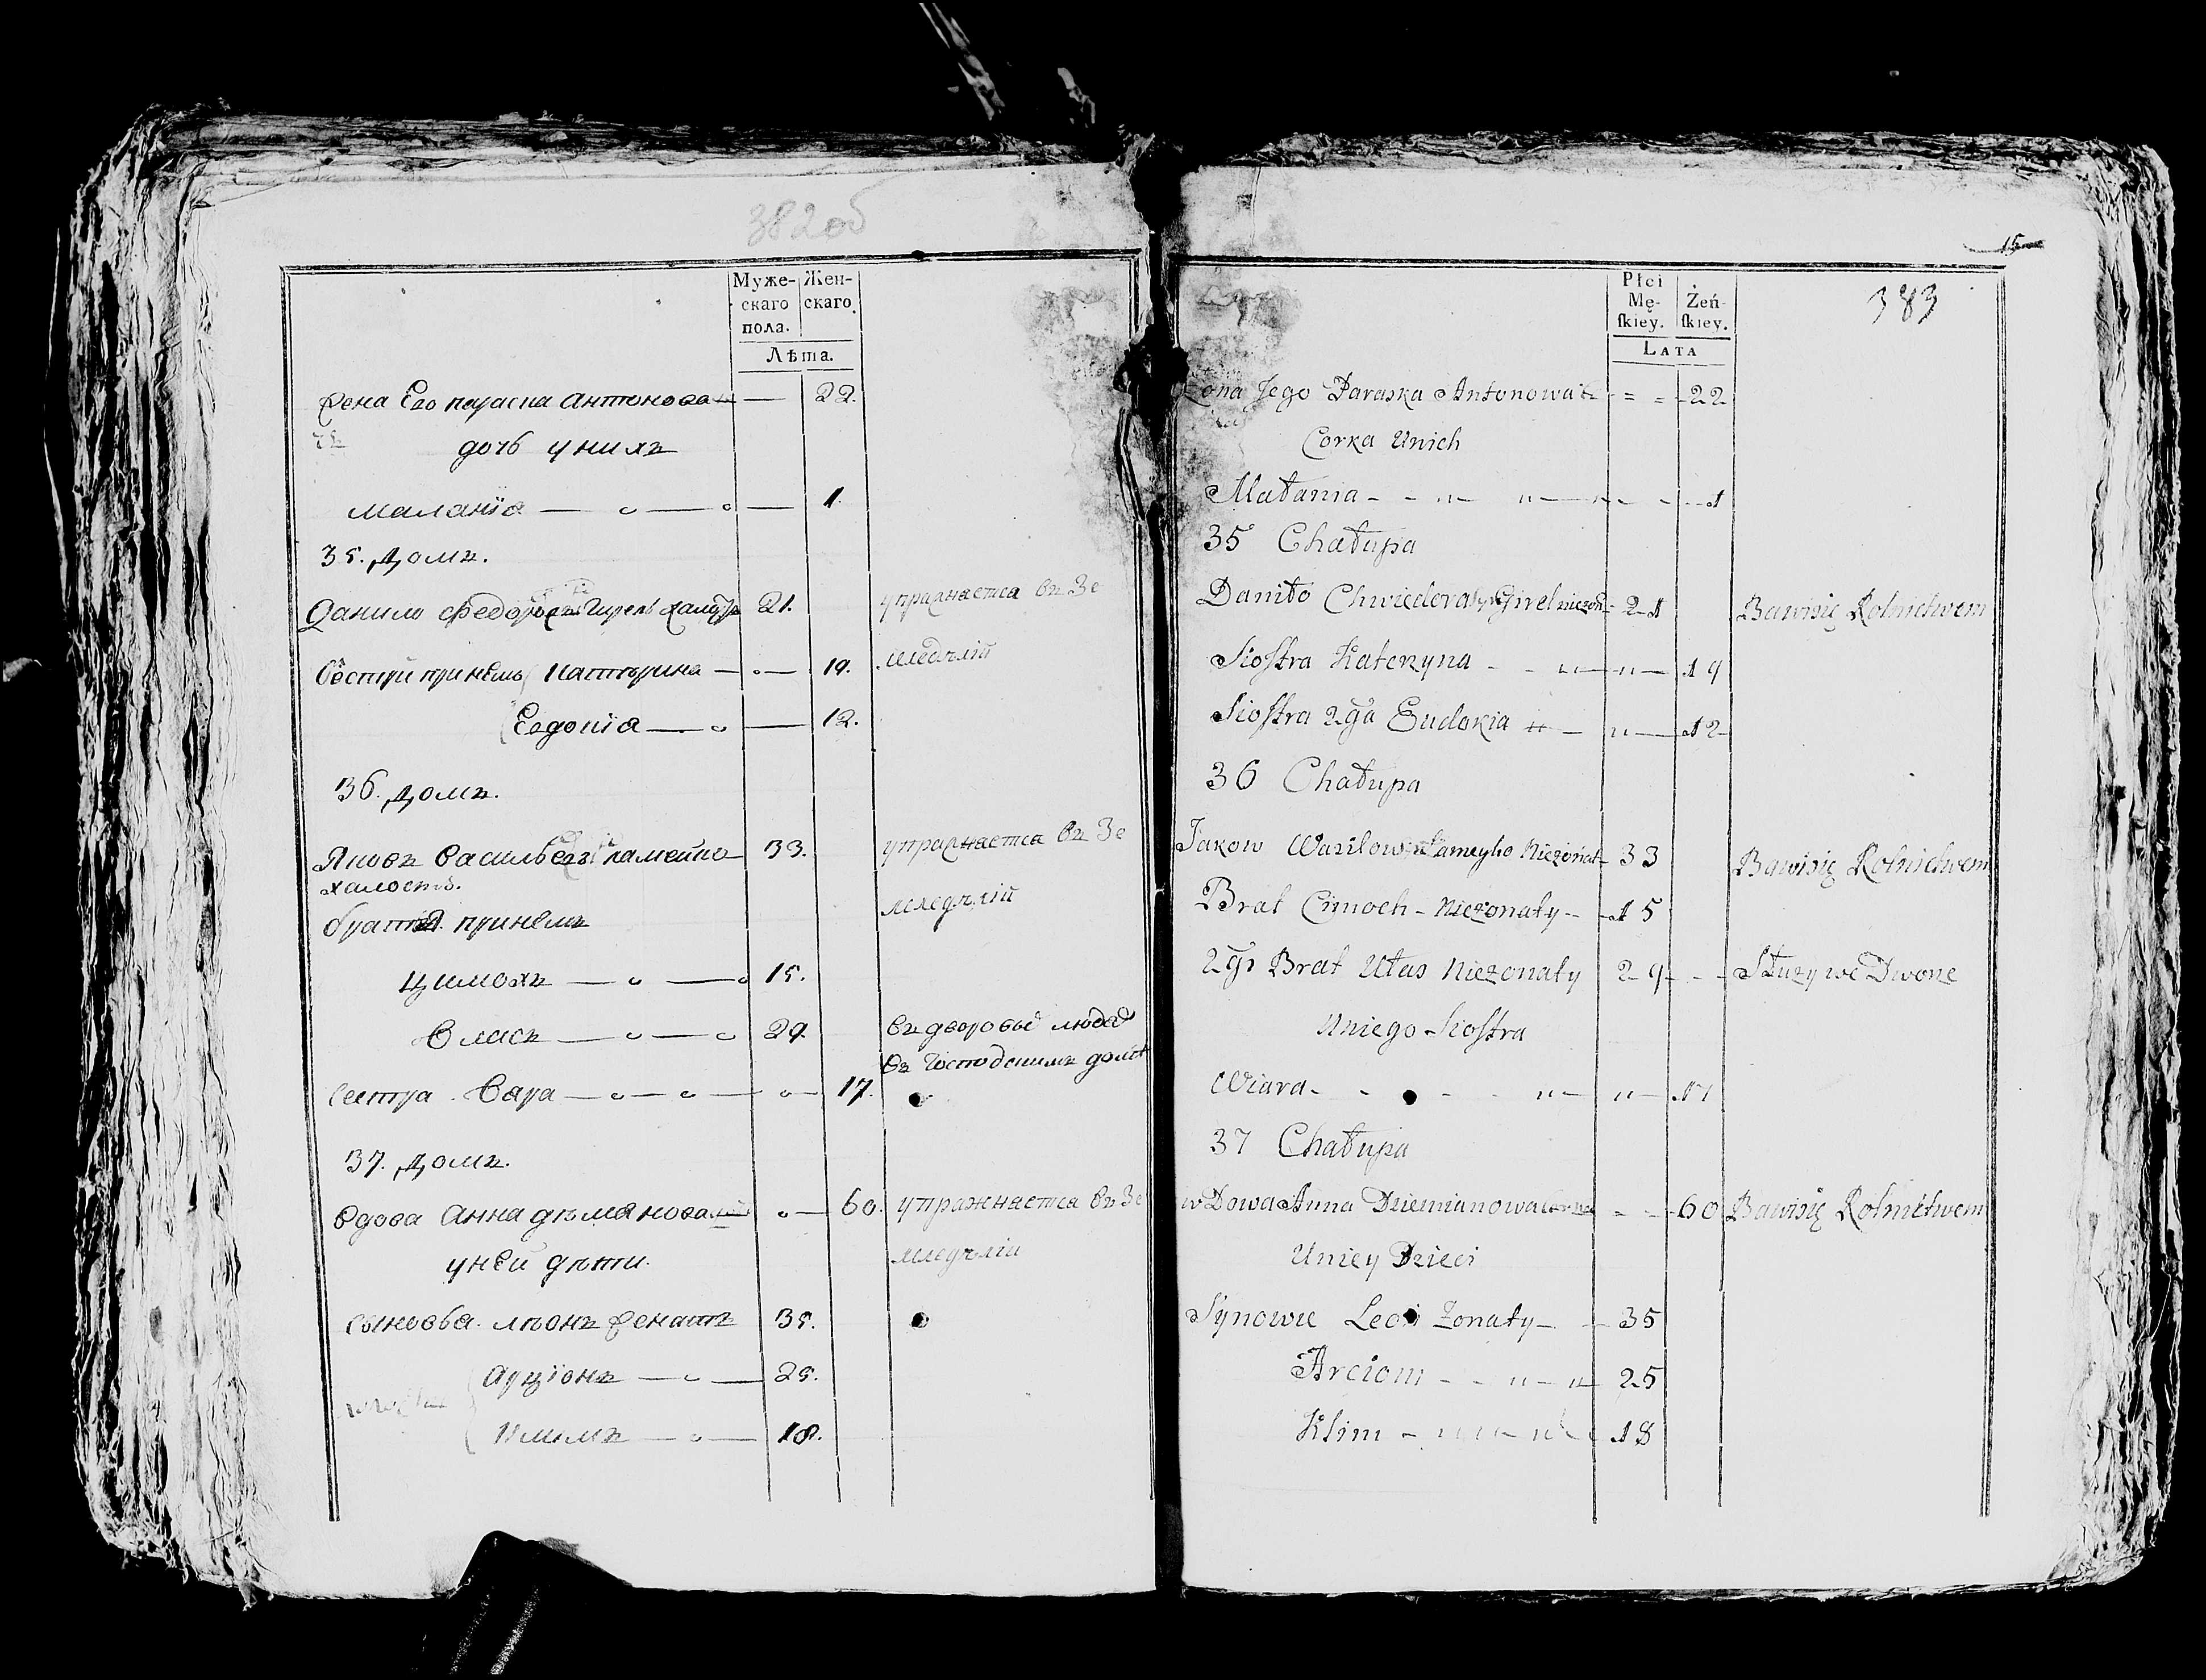 382об
Муже-
скаго
пола.
Жен-
скаго.
Лѣта.
Жена Его параска Антонова — 22.
дочь у нихъ
Маланія — 1.
35. Домъ.
Данило Федоровъ Гирель 21. упражнается въ Зе
Сестры при немъ Катерина — 19. мледѣлій
Евдокія — 12.
36. Домъ.
Яковъ Васильевъ ламейко 33. упражнается въ Зе
халостъ. мледѣлій
братья при немъ
Цимохъ — 15.
Власъ — 29. въ дворовые людей
въ Господскимъ домѣ
Сестра Вара — 17.
37. Домъ.
Вдова Анна дѣмянова — 60. упражнается въ Зе
у ней дѣти. мледѣлій
сыновья лѣонъ женатъ 35.
Арціонъ — 25.
Климъ — 18.
15
383
Płci
Mę-
skiey.
Żeń-
skiey.
LATA
Żona Jego Paraska Antonowa 22
Corka Unich
Małania 1
35 Chałupa
Daniło Chwiedorow Girel 21 Bawisię Rolnictwem
Siostra Katerzyna 19
Siostra 2ga Eudokia 12
36 Chałupa
Jakow Wasilow Łameyko Nieżonat 33 Bawisię Rolnictwem
Brat Cimoch - Nieżonaty 15
2gi Brat Ułas Nieżonaty 29 Służy we Dworze
Uniego Siostra
Wiara 17
37 Chałupa
wDowa Anna Dziemianowa 60 Bawisię Rolnictwem
Uniey Dzieci
Synowie Leon Żonaty 35
Arciom 25
Klim 18